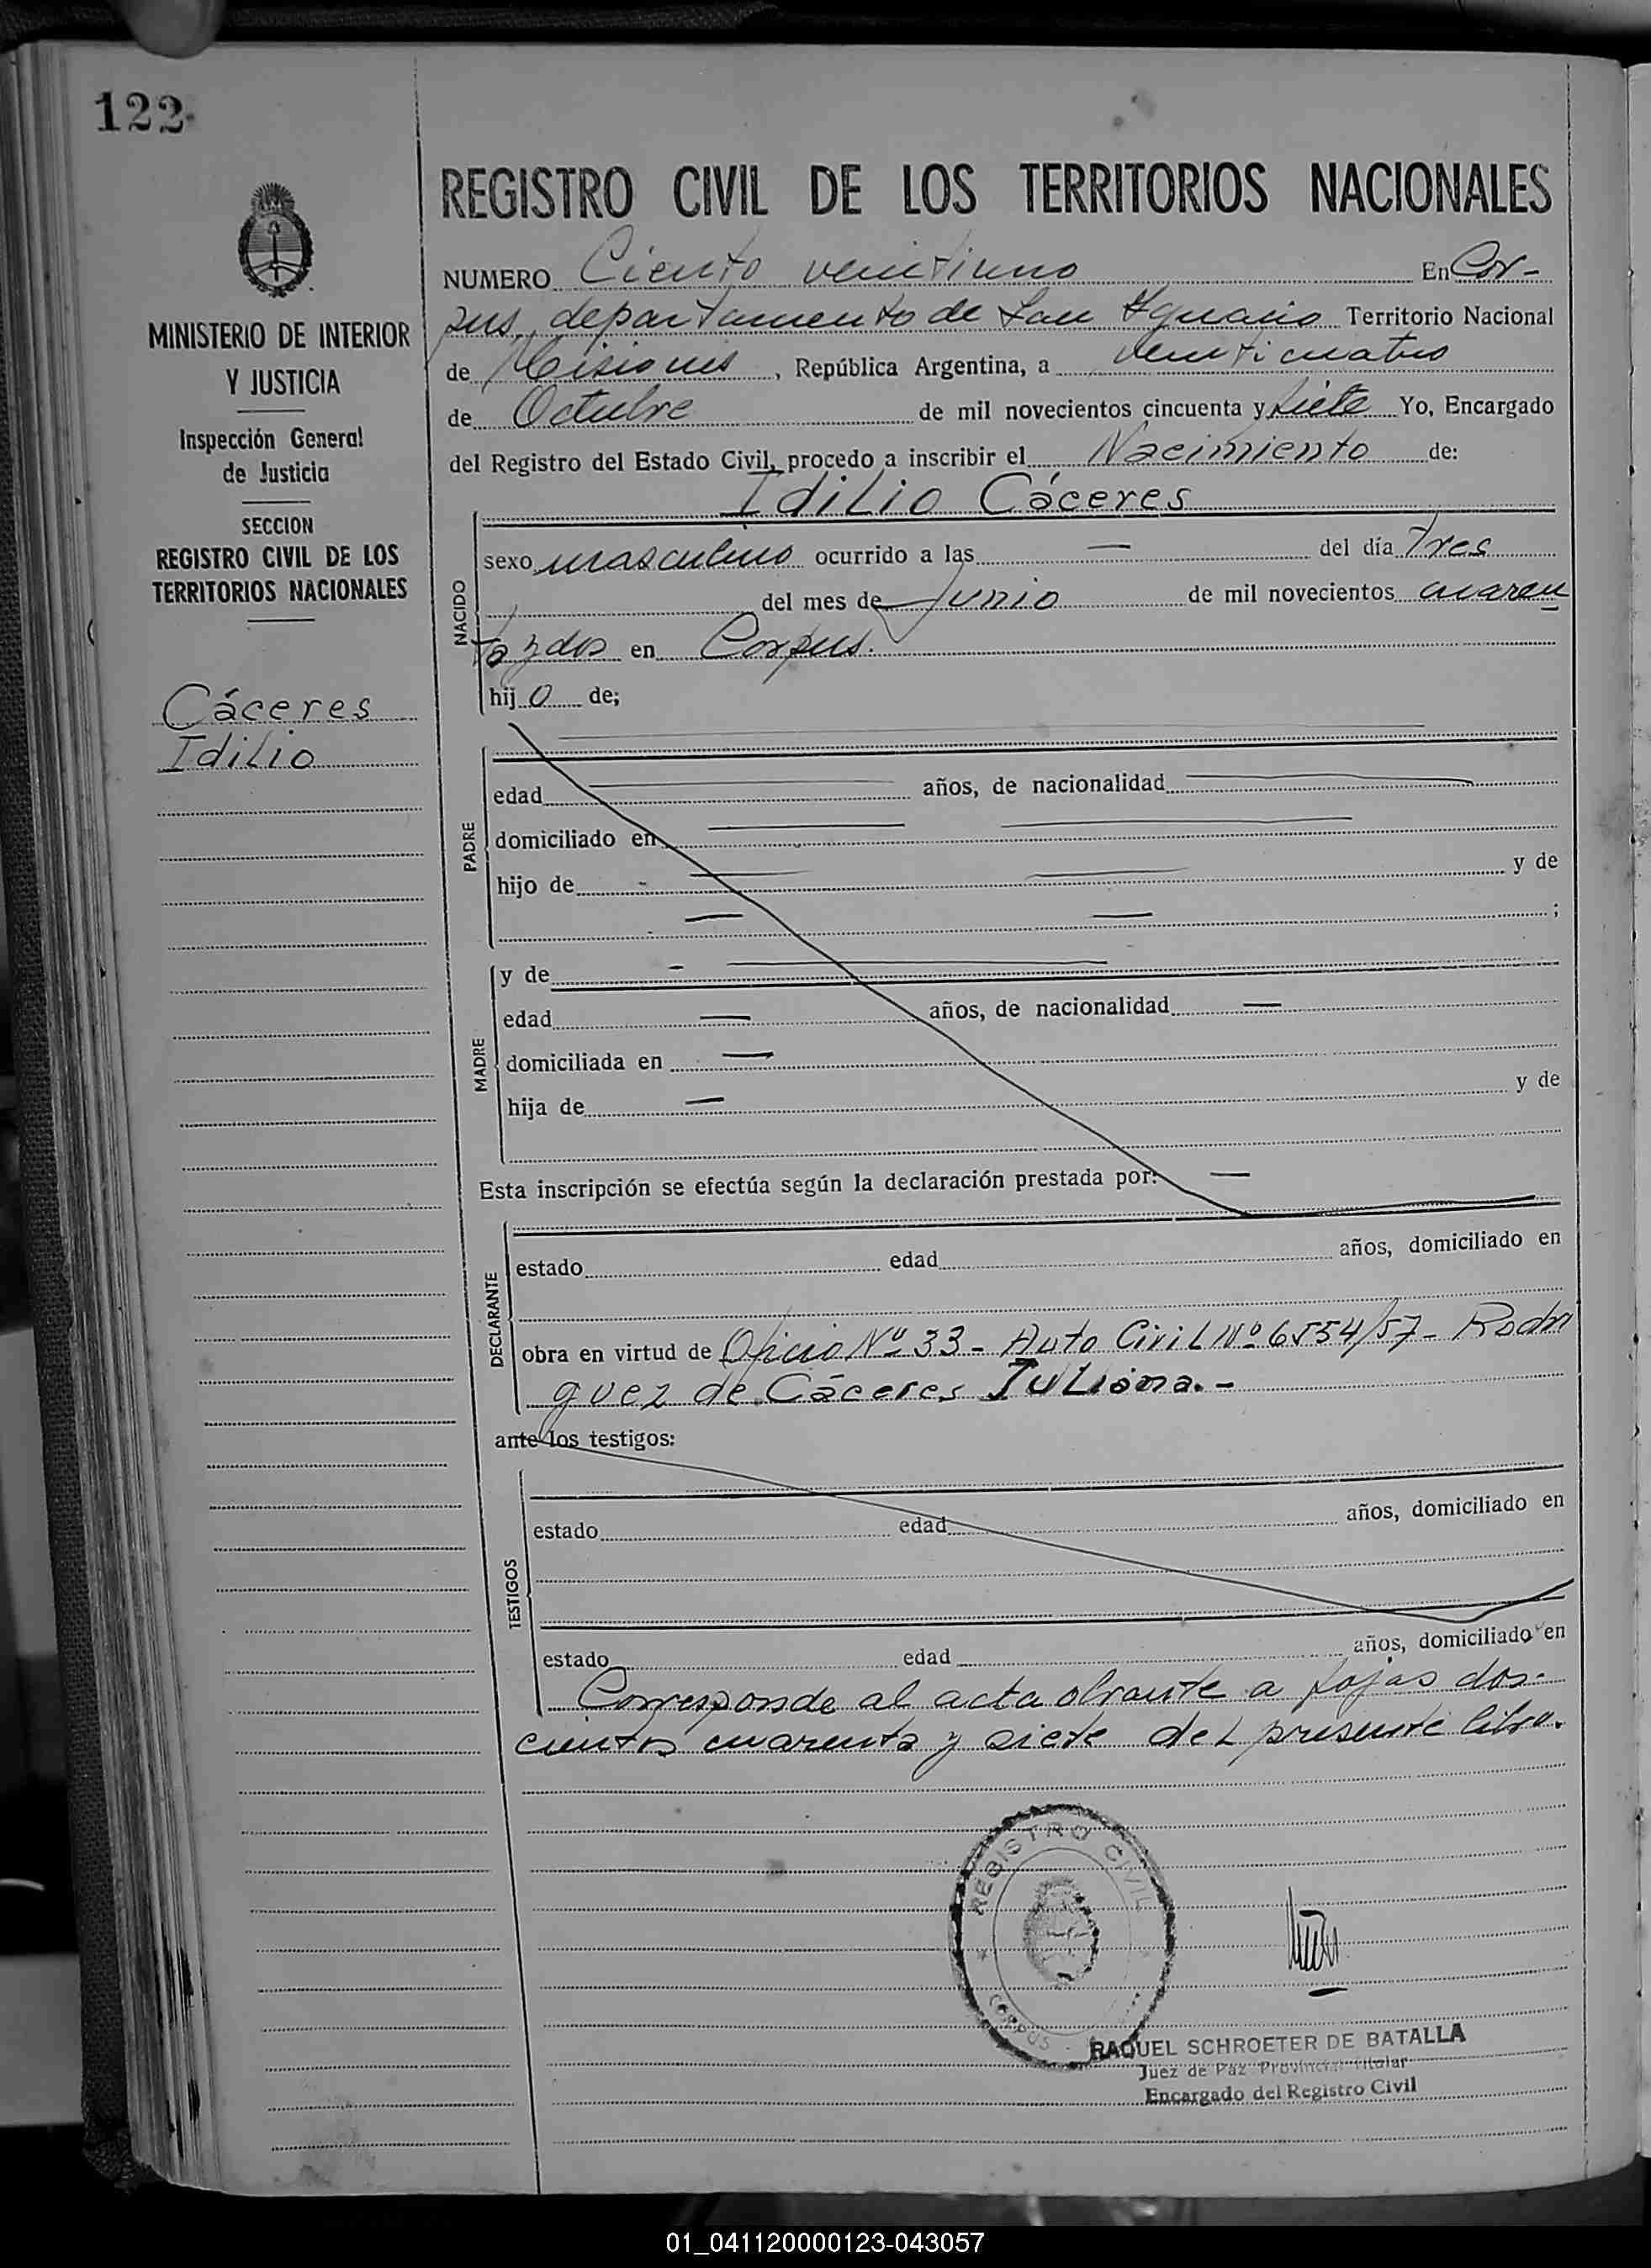 122
REGISTRO CIVIL DE LOS TERRITORIOS NACIONALES
MINISTERIO DE INTERIOR
Y JUSTICIA
Inspección General
de Justicia
SECCION
REGISTRO CIVIL DE LOS
TERRITORIOS NACIONALES
Cáceres
Idilio
NUMERO Ciento veintiuno En Cor-
pus, departamento de San Ignacio Territorio Nacional
de Misiones, República Argentina, a veinticuatro
de Octubre de mil novecientos cincuenta y siete Yo, Encargado
del Registro del Estado Civil, procedo a inscribir el Nacimiento de:
Idilio Cáceres
NACIDO
sexo masculino ocurrido a las — del día Tres
del mes de Junio de mil novecientos cuaren
ta y dos en Corpus.
hijo de;
PADRE
edad años, de nacionalidad
domiciliado en
hijo de y de
;
MADRE
y de
edad años, de nacionalidad
domiciliada en
hija de y de
Esta inscripción se efectúa según la declaración prestada por:
DECLARANTE
estado edad años, domiciliado en
obra en virtud de Oficio Nº 33 - Auto Civil Nº 6554/57 - Rodri
guez de Cáceres Juliana. -
ante los testigos:
TESTIGOS
estado edad años, domiciliado en
estado edad años, domiciliado en
Corresponde al acta obrante a fojas dos-
cientos cuarenta y siete del presente libro.
REGISTRO CIVIL
CORPUS
RAQUEL SCHROETER DE BATALLA
Juez de Paz Provincial Titular
Encargado del Registro Civil
01_041120000123-043057